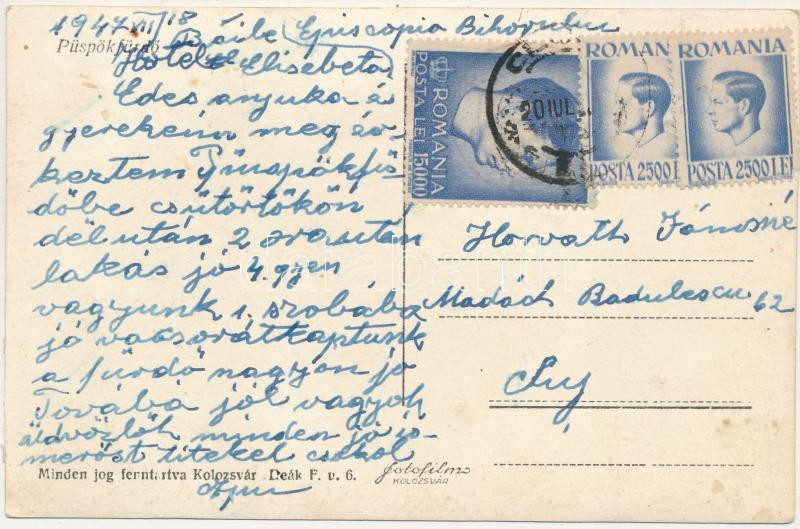 1947 VII/18
Püspökfürdő Băile Episcopia Bihorului
Hotel Elisebeta
Édes anyuka és
gyerekeim meg ér
keztem Püspökfür
dőbe csütörtökön
délután 2 óra után
lakás jó 4.gyen
vagyunk 1. szobába
jó vacsorát kaptunk
a fürdő nagyon jó
Továbá jól vagyok
üdvözlök minden jó is
merőst titeket csókol
Apu
Minden jog fenntartva Kolozsvár Deák F. u. 6.
fotofilm
KOLOZSVÁR
ROMANIA
POSTA LEI 15000
20 IUL
ROMANIA
POSTA 2500 LEI
ROMANIA
POSTA 2500 LEI
Horváth Jánosné
Madách Badulescu 62
Cluj
darabanth